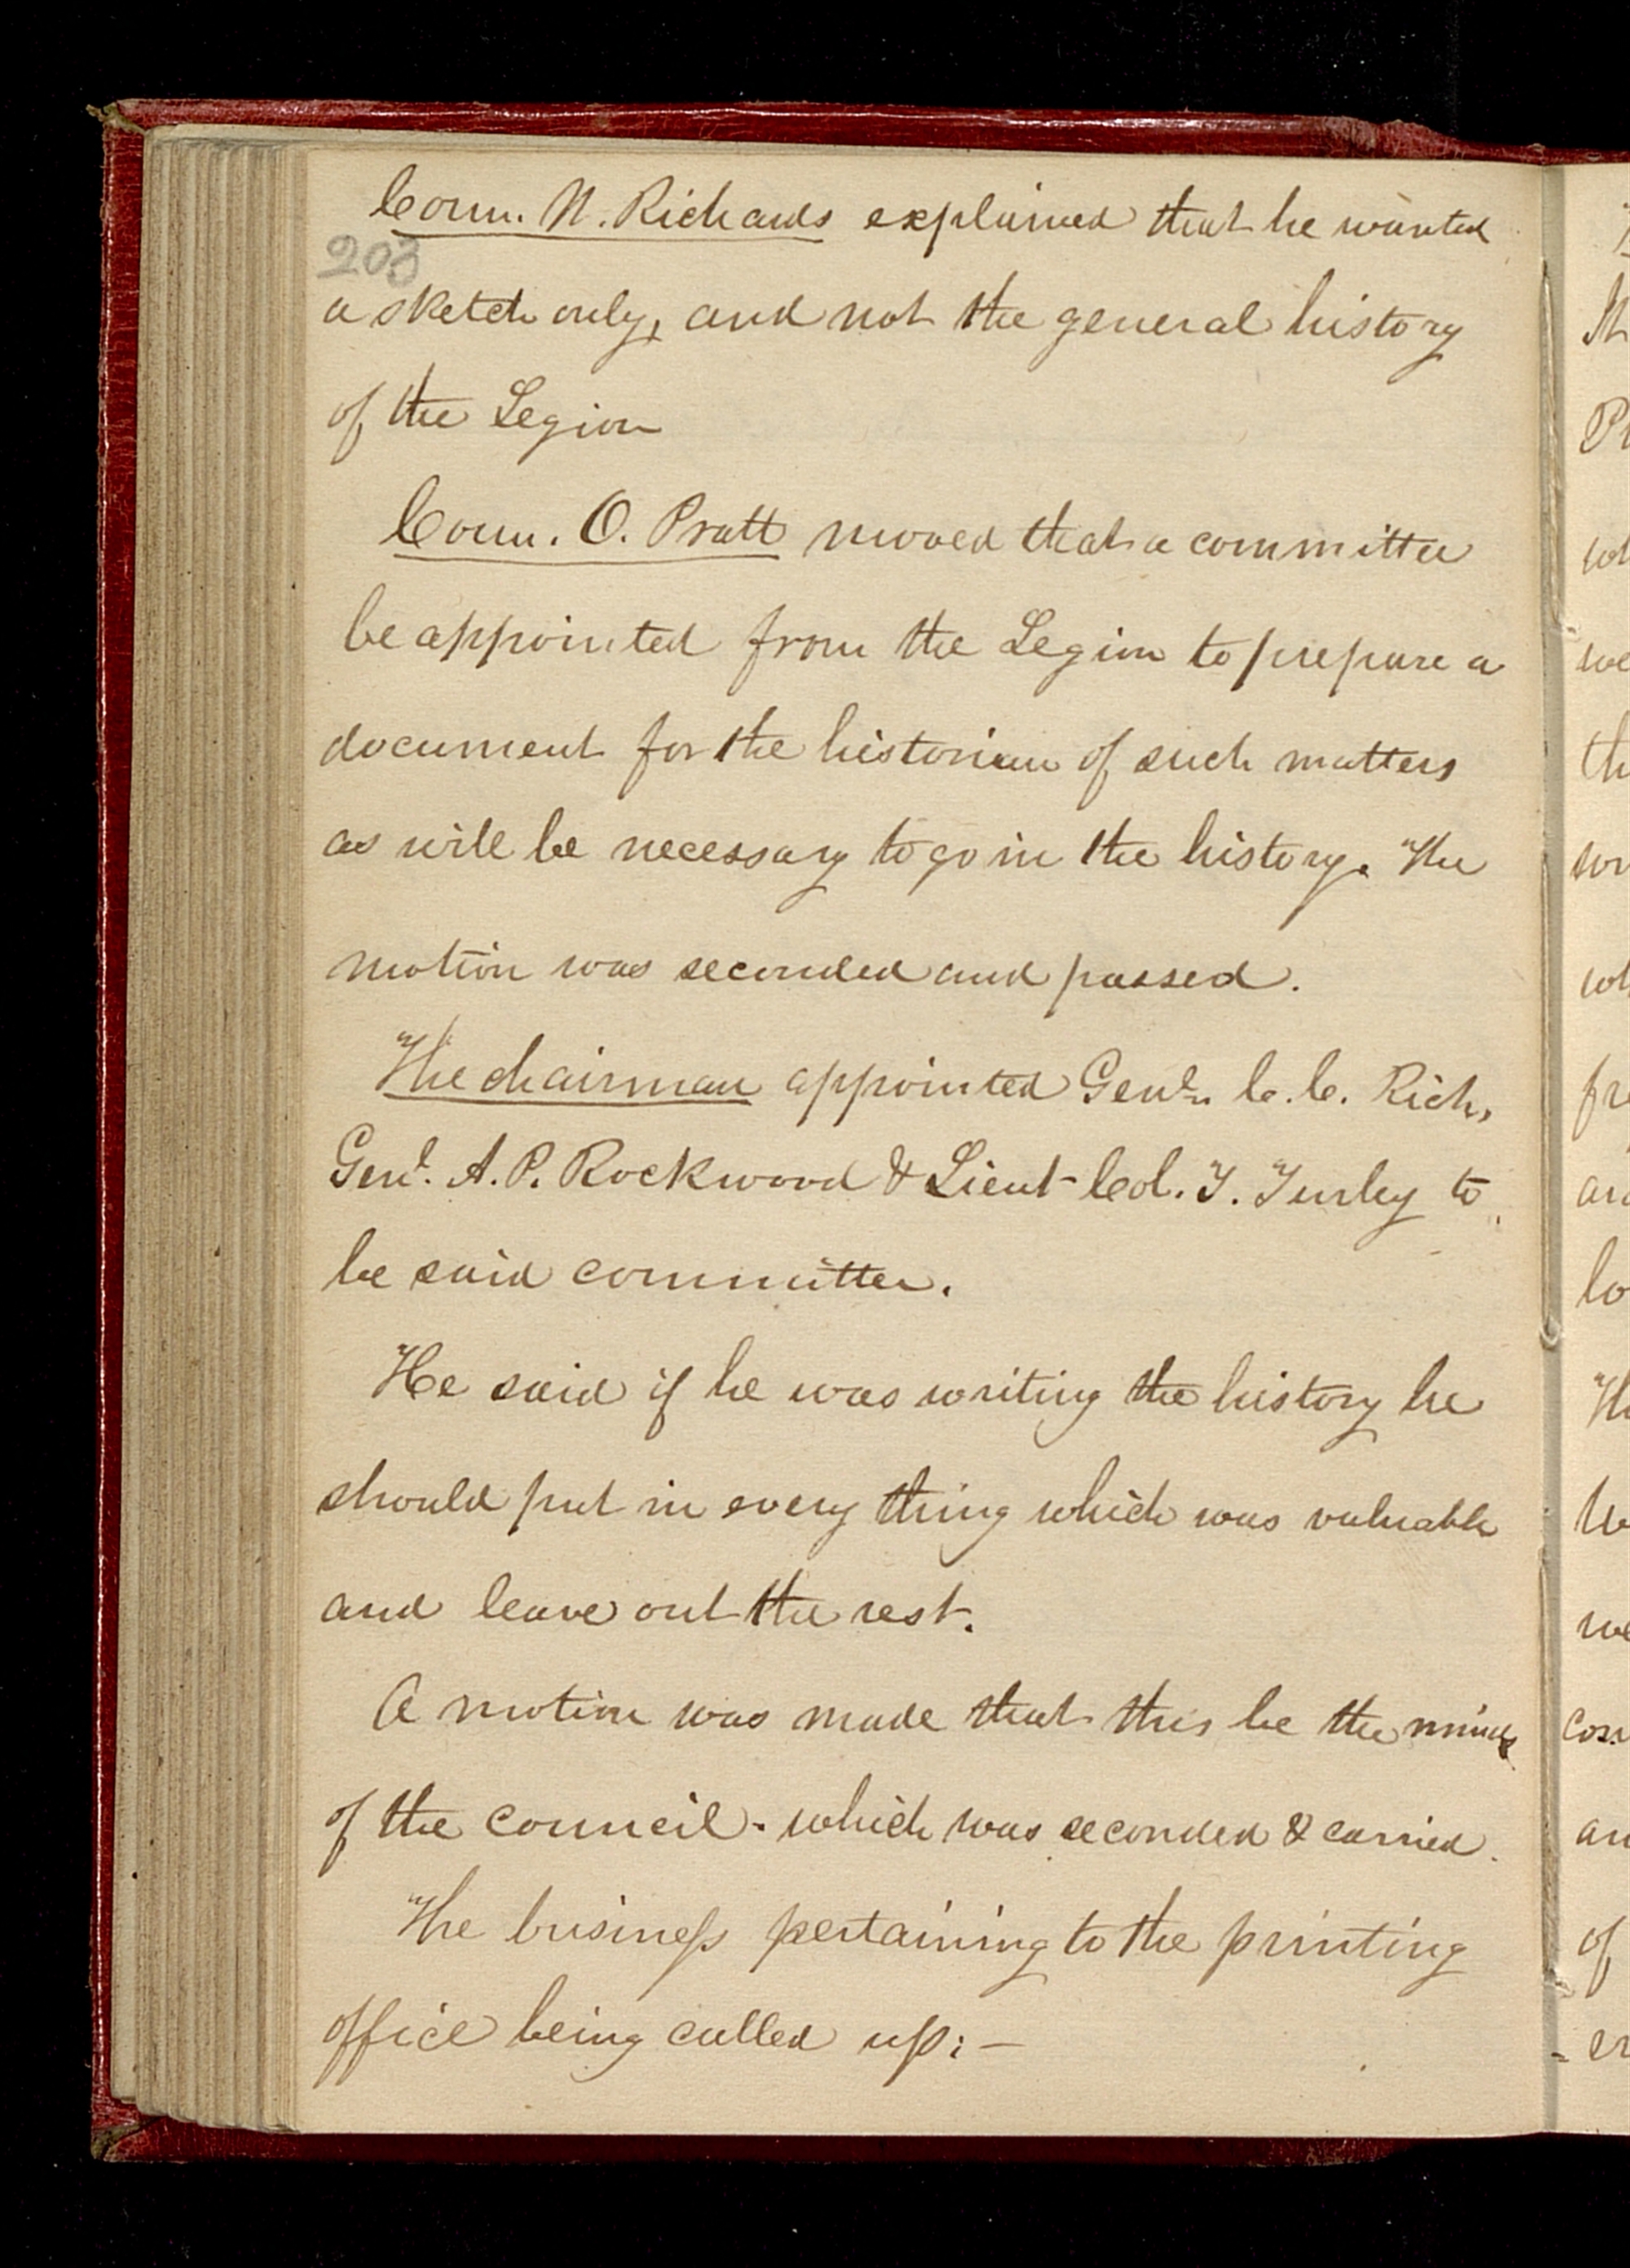 Coun. W. Richards explained that he wanted
203
a sketch only, and not the general history
of the Legion
Coun. O. Pratt moved that a committee
be appointed from the Legion to prepare a
document for the historian of such matters
as will be necessary to go in the history. The
motion was seconded and passed.
The chairman appointed Genl. C. C. Rich,
Genl. A. P. Rockwood & Lieut Col. T. Turley to
be said committee.
He said if he was writing the history he
should put in every thing which was valuable
and leave out the rest.
A motion was made that this be the mind
of the council. which was seconded & carried.
The business pertaining to the printing
office being called up:—